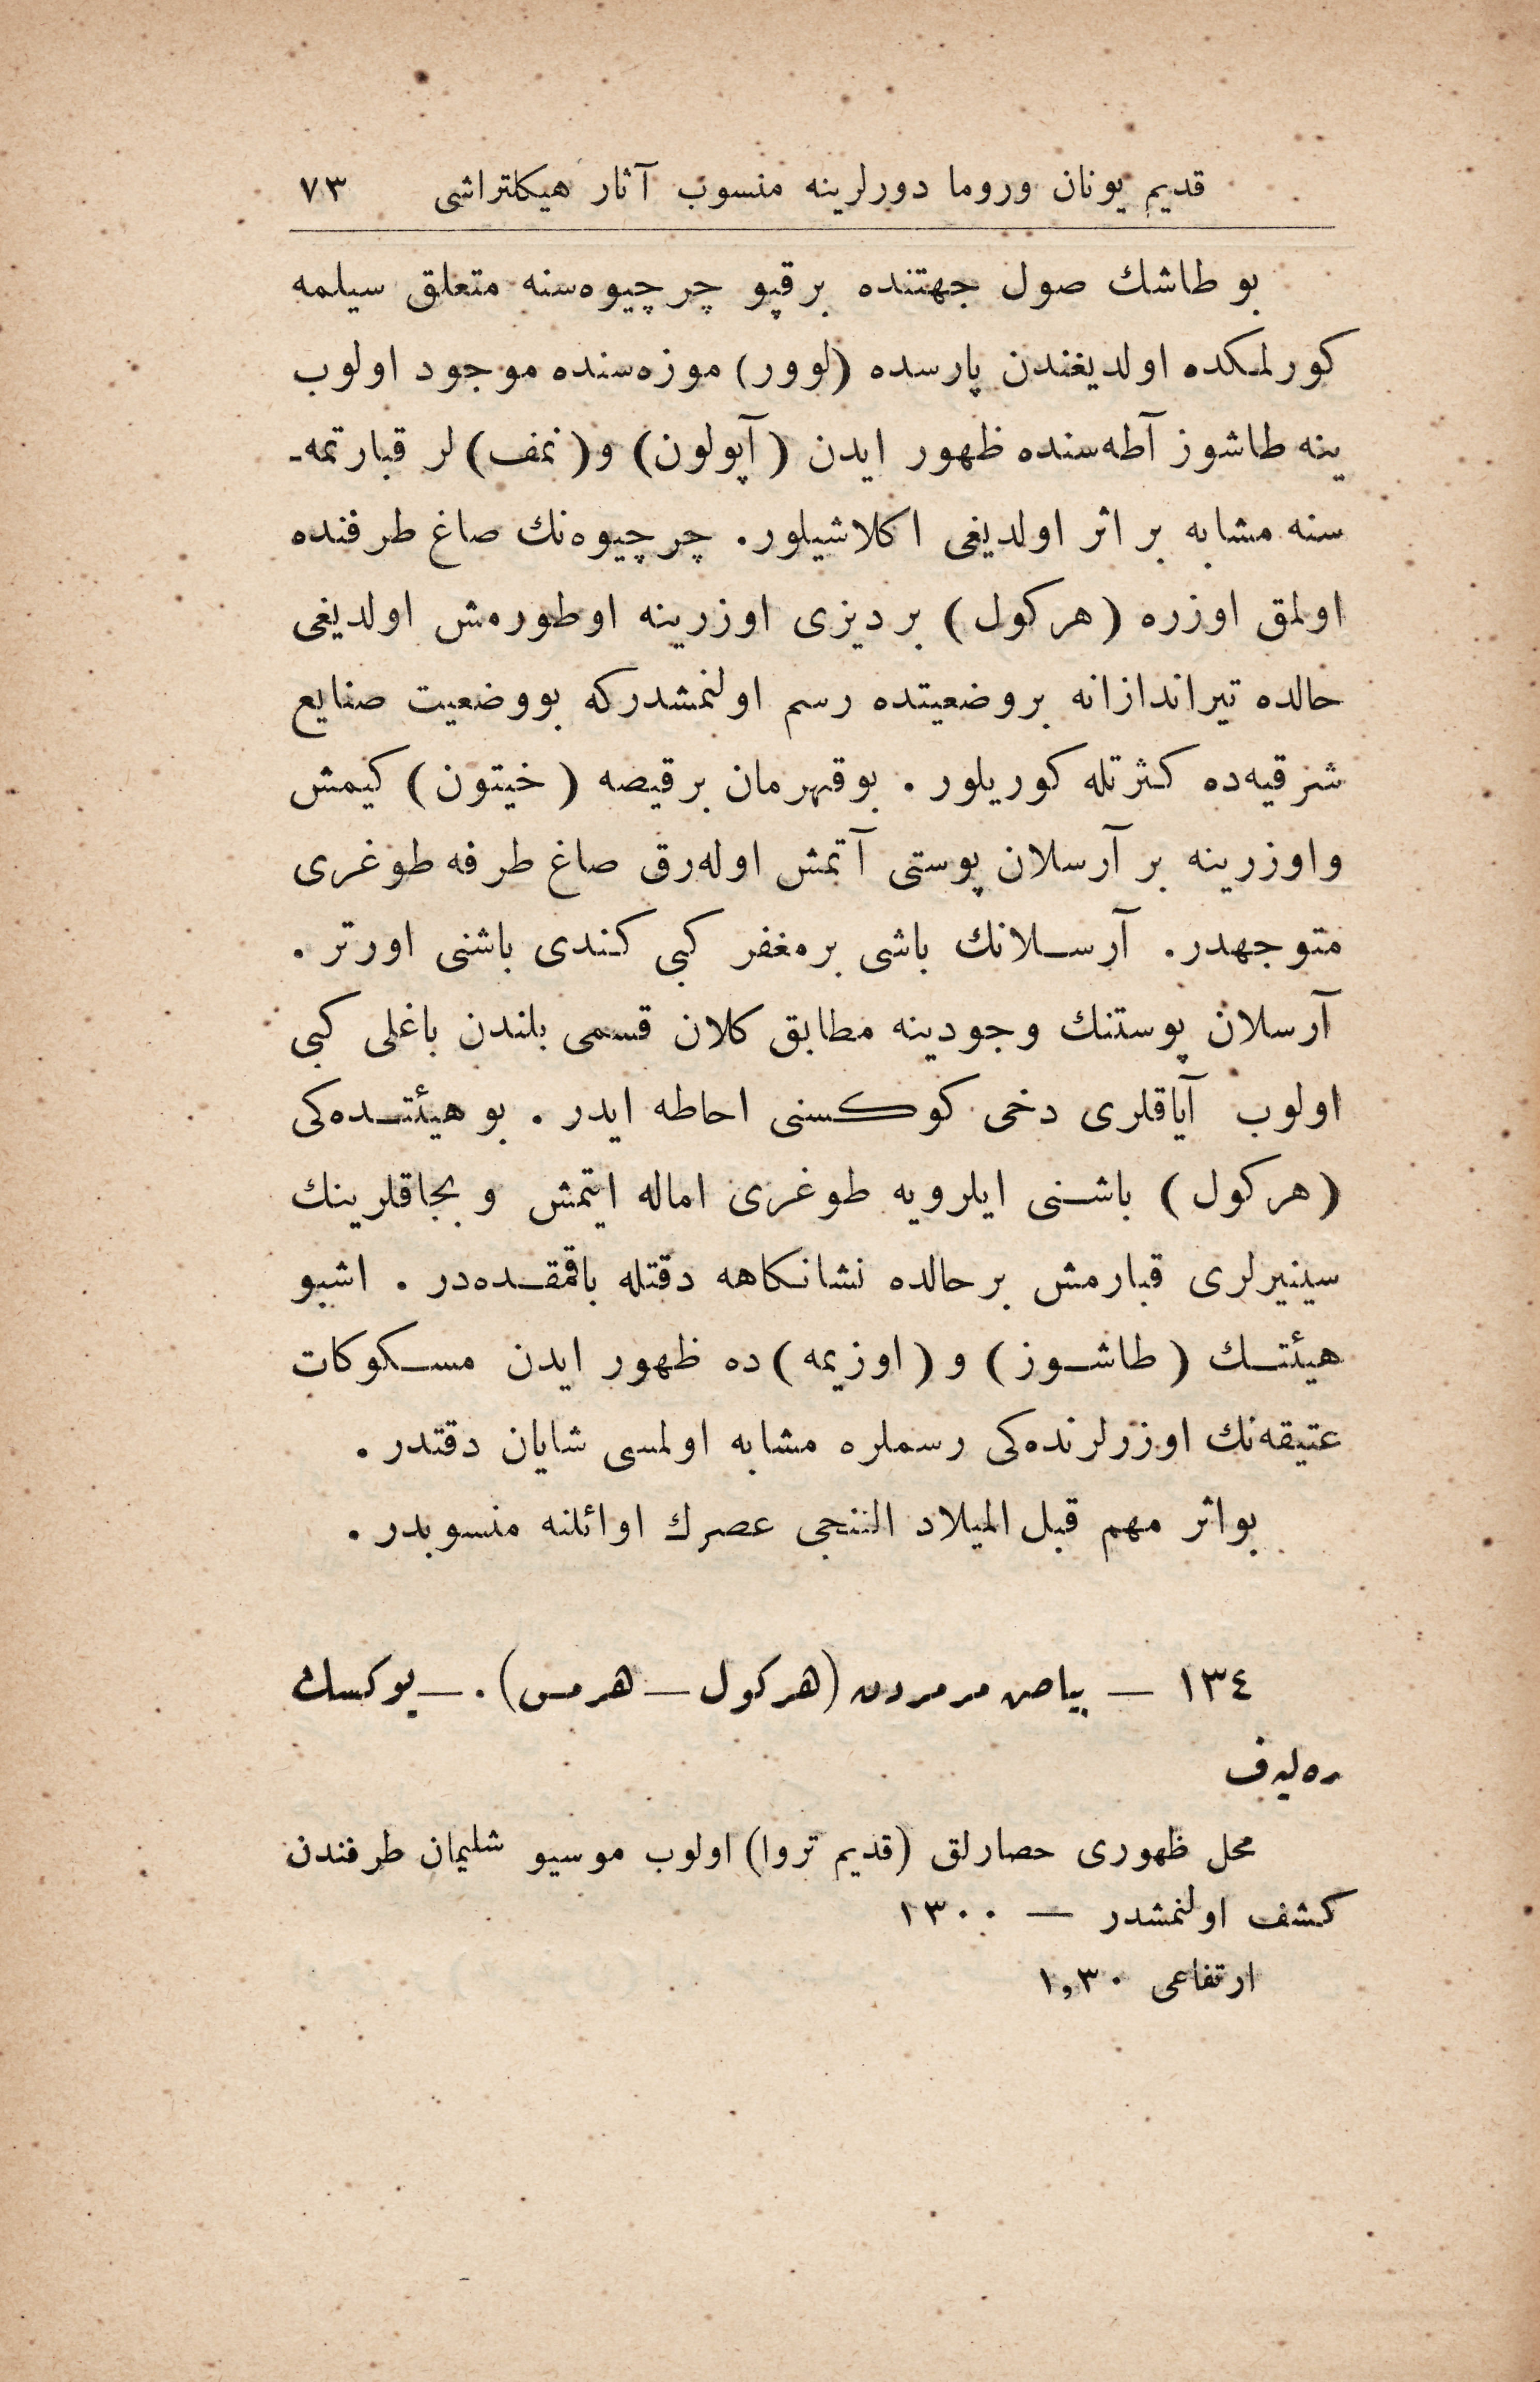 قدیم یونان وروما دورلرینه منسوب آثار هیکلتراشی ٧٣
بو طاشك صول جهتنده برقپو چرچیوه‌سنه متعلق سیلمه
کورلمکده اولدیغندن پارسده (لوور) موزه‌سنده موجود اولوب
ینه طاشوز آطه‌سنده ظهور ایدن (آپولون) و(نمف)لر قبارتمه‌ـ
سنه مشابه بر اثر اولدیغی اکلاشیلور. چرچیوه‌نك صاغ طرفنده
اولمق اوزره (هرکول) بر دیزی اوزرینه اوطورمش اولدیغی
حالده تیراندازانه بروضعیتده رسم اولنمشدرکه بووضعیت صنایع
شرقیه‌ده کثرتله کوریلور. بوقهرمان برقیصه (خیتون) کیمش
واوزرینه بر آرسلان پوستی آتمش اوله‌رق صاغ طرفه طوغری
متوجهدر. آرسلانك باشی برمغفر کبی کندی باشنی اورتر.
آرسلان پوستنك وجودینه مطابق کلان قسمی بلندن باغلی کبی
اولوب آیاقلری دخی کوکسنی احاطه ایدر. بو هیئتده‌کی
(هرکول) باشنی ایلرویه طوغری اماله ایتمش و بجاقلرینك
سینیرلری قبارمش برحالده نشانکاهه دقتله باقمقده‌در. اشبو
هیئتك (طاشوز) و (اوزیمه)ده ظهور ایدن مسکوکات
عتیقه‌نك اوزرلرنده‌کی رسملره مشابه اولمسی شایان دقتدر.
بواثر مهم قبل المیلاد التنجی عصرك اوائلنه منسوبدر.
١٣٤ — بیاض مرمردن (هرکول — هرمس). — یوکسك
ره‌لیه‌ف
محل ظهوری حصارلق (قدیم تروا) اولوب موسیو شلیمان طرفندن
کشف اولنمشدر — ١٣٠٠
ارتفاعی ١,٣٠